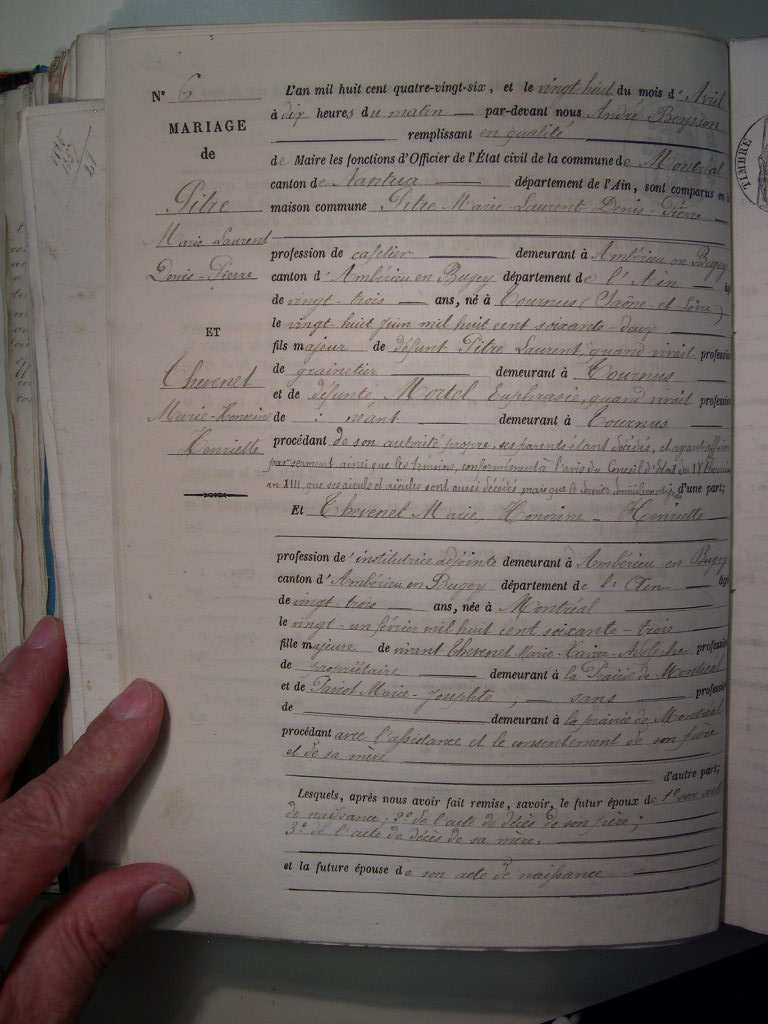 N° 6
MARIAGE
de
Pitre
Marie Laurent
Denis-Pierre
ET
Thevenet
Marie-Honorine
Henriette
L'an mil huit cent quatre-vingt-six, et le vingt huit du mois d'Avril
à dix heures du matin par-devant nous André Beysson
remplissant en qualité
de Maire les fonctions d'Officier de l'État civil de la commune de Montréal
canton de Nantua département de l'Ain, sont comparus en la
maison commune Pitre Marie Laurent Denis-Pierre
profession de cafetier demeurant à Ambérieu en Bugey
canton d'Ambérieu en Bugey département de l'Ain âgé
de vingt-trois ans, né à Tournus (Saône et Loire)
le vingt huit juin mil huit cent soixante-deux
fils majeur de défunt Pitre Laurent, quand vivait profession
de grainetier demeurant à Tournus
et de défunte Mortel Euphrasie, quand vivait profession
de : néant demeurant à Tournus
procédant de son autorité propre, ses parents étant décédés, et ayant affirmé
par serment ainsi que les témoins, conformément à l'avis du Conseil d'Etat du
an XIII, que ses aïeuls et aïeules sont aussi décédés, mais que le dernier domicile d'une part;
Et Thevenet Marie Honorine-Henriette
profession de institutrice adjointe demeurant à Ambérieu en Bugey
canton d'Ambérieu en Bugey département de l'Ain âgée
de vingt trois ans, née à Montréal
le vingt-un février mil huit cent soixante-trois
fille majeure de vivant Thevenet Marie-Xavier profession
de propriétaire demeurant à la Prairie de Montréal
et de Marie-Josephte, sans profession
de demeurant à la prairie de Montréal
procédant avec l'assistance et le consentement de son père
et de sa mère
d'autre part;
Lesquels, après nous avoir fait remise, savoir, le futur époux de 1° son acte
de naissance; 2° de l'acte de décès de son père;
3° et l'acte de décès de sa mère.
et la future épouse de son acte de naissance
TIMBRE